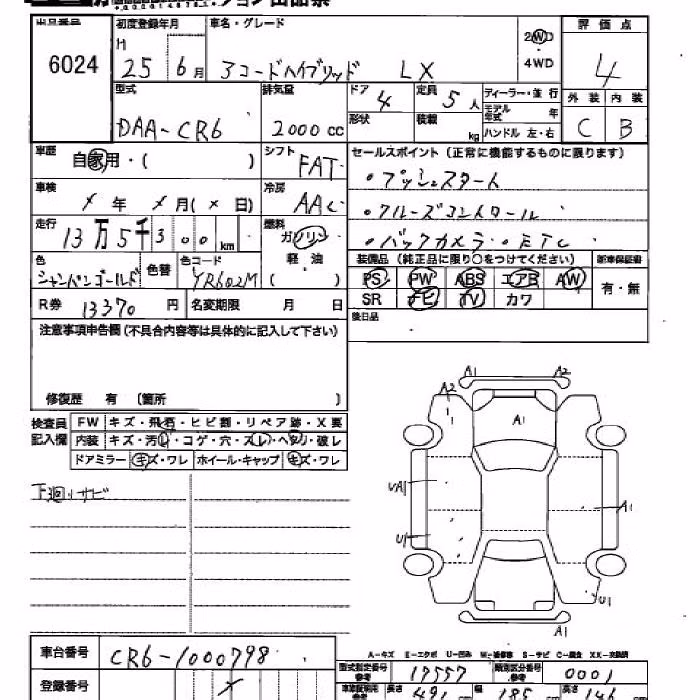 出品番号 初度登録年月 車名・グレード 評価点
6024 H 25 6月 アコードハイブリッド LX 2WD ・4WD 4
型式 排気量 ドア 4 定員 5人 ディーラー・並行 外装 内装
DAA-CR6 2000cc 形状 積載 kg モデル年式 年 ハンドル 左・右 C B
車歴 自家用・( ) シフト FAT セールスポイント(正常に機能するものに限ります)
・プッシュスタート
車検 メ年 メ月(メ日) 冷房 AAC
・クルーズコントロール
走行 13万5千300km 燃料 ガソリン
・バックカメラ・ETC
軽油 ( )
色 シャンパンゴールド 色替 色コード YR602M
装備品(純正品に限り○をつけてください) 新車保証書
PS PW ABS エアB AW 有・無
SR ナビ TV カワ
R券 13370円 名変期限 月 日
後日品
注意事項申告欄(不具合内容等は具体的に記入して下さい)
修復歴 有 〔箇所 〕
検査員記入欄 FW キズ・飛石・ヒビ割・リペア跡・X要
内装 キズ・汚レ・コゲ・穴・スレ・ヘタリ・破レ
ドアミラー キズ・ワレ ホイール・キャップ キズ・ワレ
下廻りサビ
A1 A2
A2
A1
UA1
A1
U1
U1
A1
A-キズ E-エクボ U-凹み W-補修車 S-サビ C-腐食 XX-交換済
車台番号 CR6-1000798
型式指定番号 参考 17557 類別区分番号 参考 0001
登録番号 メ
長さ 491cm 幅 185cm 高さ 146cm